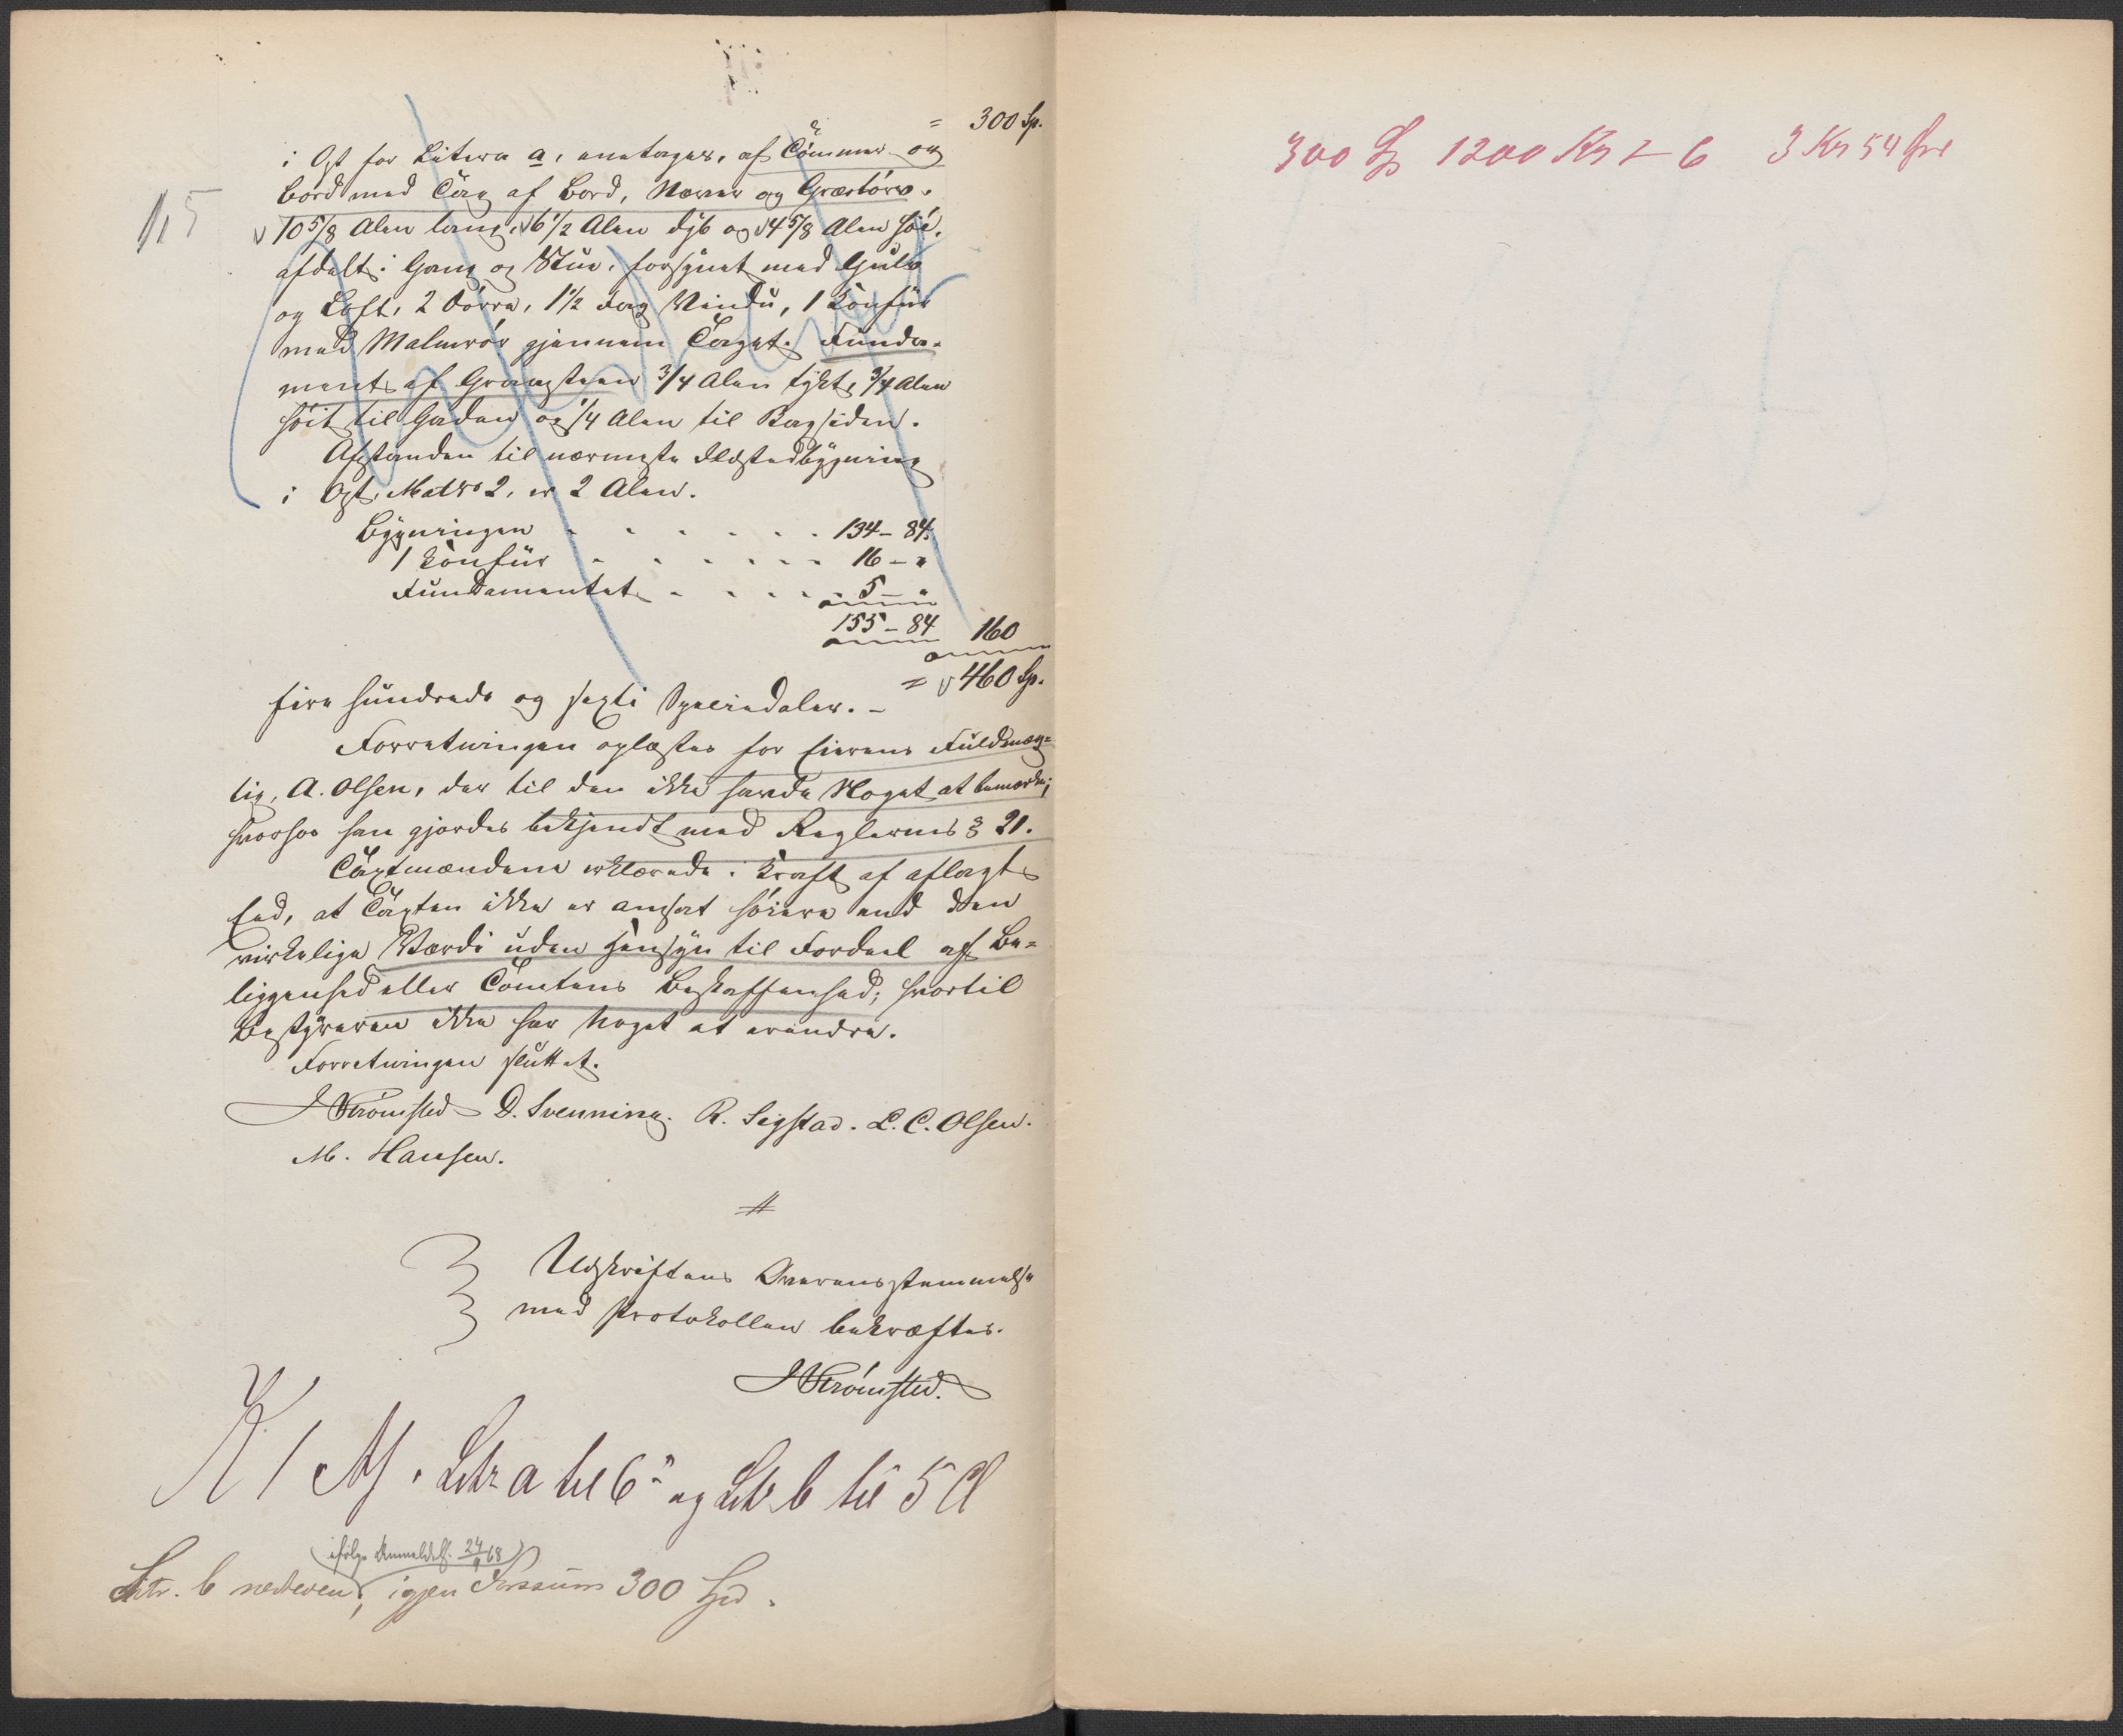 = 300 Sp.
i Øst for Litera a, anetages, af Tömmer og
Bord med Tag af Bord, Næver og Græstörv.
10 5/8 Alen lang, 6 1/2 Alen dyb og 4 5/8 Alen höi,
afdelt i Gang og Stue, forsynet med Gulv
og Loft, 2 Dörre, 1 1/2 Fag Vindu, 1 Komfür
med Malmrör gjennem Taget. Funda-
ment af Graasteen 3/4 Alen tykt, 3/4 Alen
höit til Gaden og 1/4 Alen til Bagsiden.
Afstanden til nærmeste Ildstedbygning
i Øst, Mat No 2, er 2 Alen.
Bygningen - - - - - - 134 - 84
1 Komfür - - - - - - 16 - "
Fundamentet - - - - 5 - "
155 - 84 160
= 460 Sp.
fire hundrede og sexti Speciedaler. -
Forretningen oplæstes for Eierens Fuldmæg-
tig, A. Olsen, der til den ikke havde Noget at bemærke;
hvorhos han gjordes bekjendt med Reglernes § 21.
Taxtmændene erklærede i Kraft af aflagt
Eed, at Taxten ikke er ansat höiere end den
virkelige Værdi uden Hensyn til Fordeel af Be-
liggenhed eller Tomtens Beskaffenhed; hvortil
Bestyreren ikke har noget at erindre.
Forretningen sluttet.
J Strömsted D. Svenning. R. Sigstad. L. C. Olsen.
M. Hansen.
#
Udskriftens Overensstemmelse
med Protokollen bekræftes.
J Strömsted.
Litr a til 6 og Litr b til 5 Cl
(ifølge Anmeldels. 24/9 68)
Litr. b nedreven, igjen Forssum 300 Spd.
115
300 Sp 1200 Kr 2 - 6 3 Kr 54 Øre